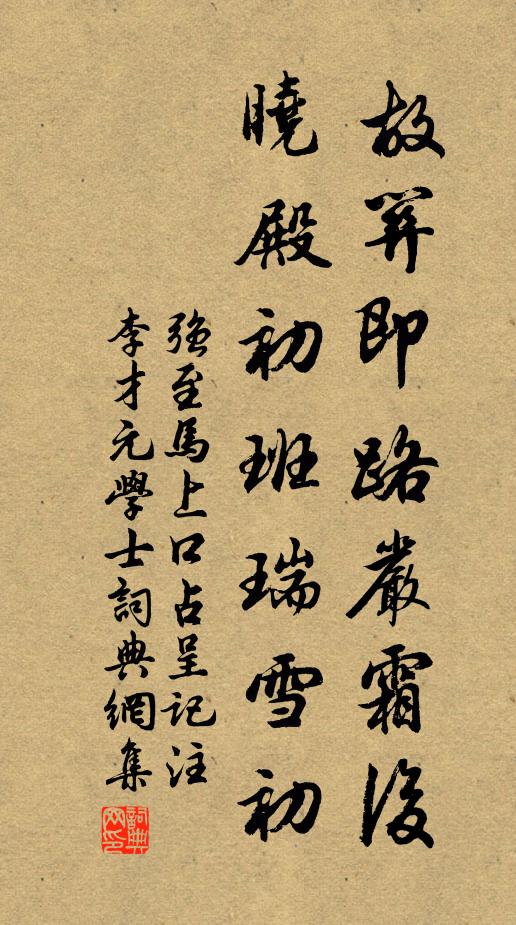 故關即路嚴霜後
曉殿初班瑞雪初
強至馬上口占呈記注
李才元學士詞典網集
詞典
网印